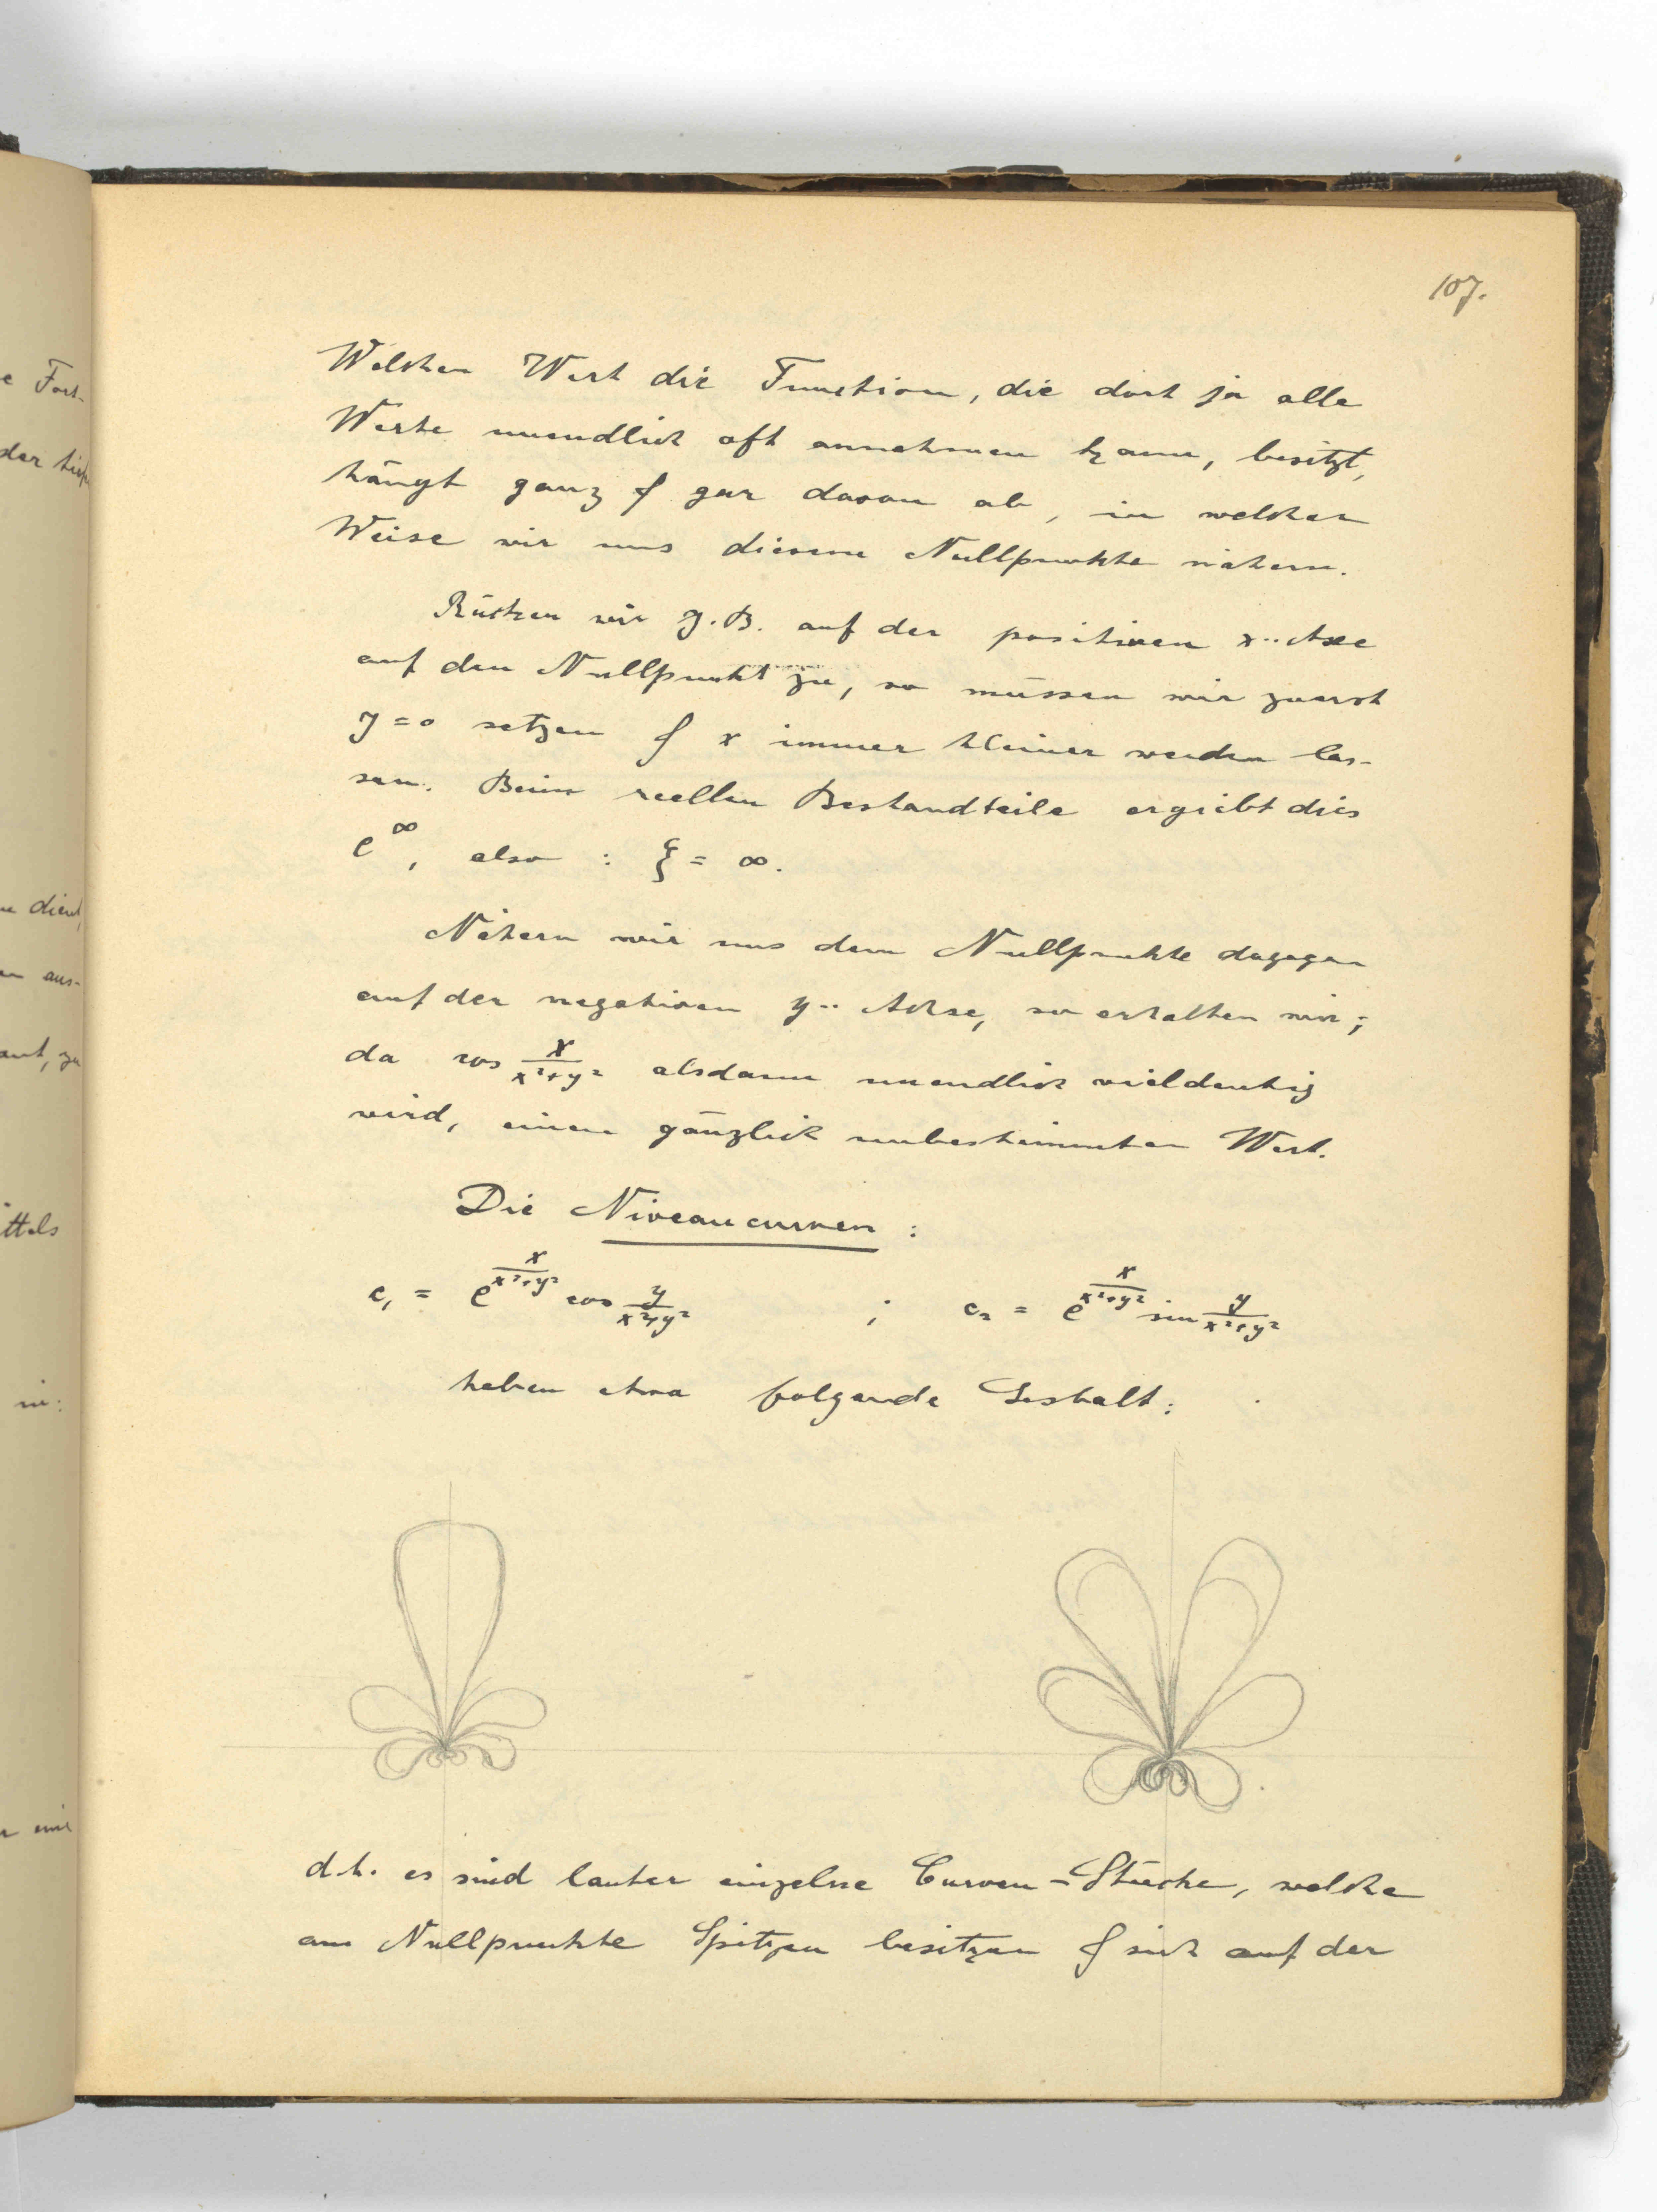 e Fort-
der tief
dient,
aus-
ant, zu
ittels
in:
r eine
107.
Welchen Wert die Function, die dort ja alle
Werte unendlich oft annehmen kann, besitzt,
hängt ganz & gar davon ab, in welcher
Weise wir uns diesem Nullpunkte nähern.
Rücken wir z.B. auf der positiven x-Axe
auf den Nullpunkt zu, so müssen wir zuerst
y=o setzen & x immer kleiner werden las-
sen. Beim reellen Bestandteile ergiebt dies
e^∞, also : ξ = ∞.
Nähern wir uns dem Nullpunkte dagegen
auf der negativen y-Achse, so erhalten wir,
da cos x/(x²+y²) alsdann unendlich vieldeutig
wird, einen gänzlich unbestimmten Wert.
Die Niveaucurven :
c₁ = e^(x/(x²+y²)) cos y/(x²+y²) ; c₂ = e^(x/(x²+y²)) sin y/(x²+y²)
haben etwa folgende Gestalt:
d.h. es sind lauter einzelne Curven-Stücke, welche
am Nullpunkte Spitzen besitzen & sich auf der